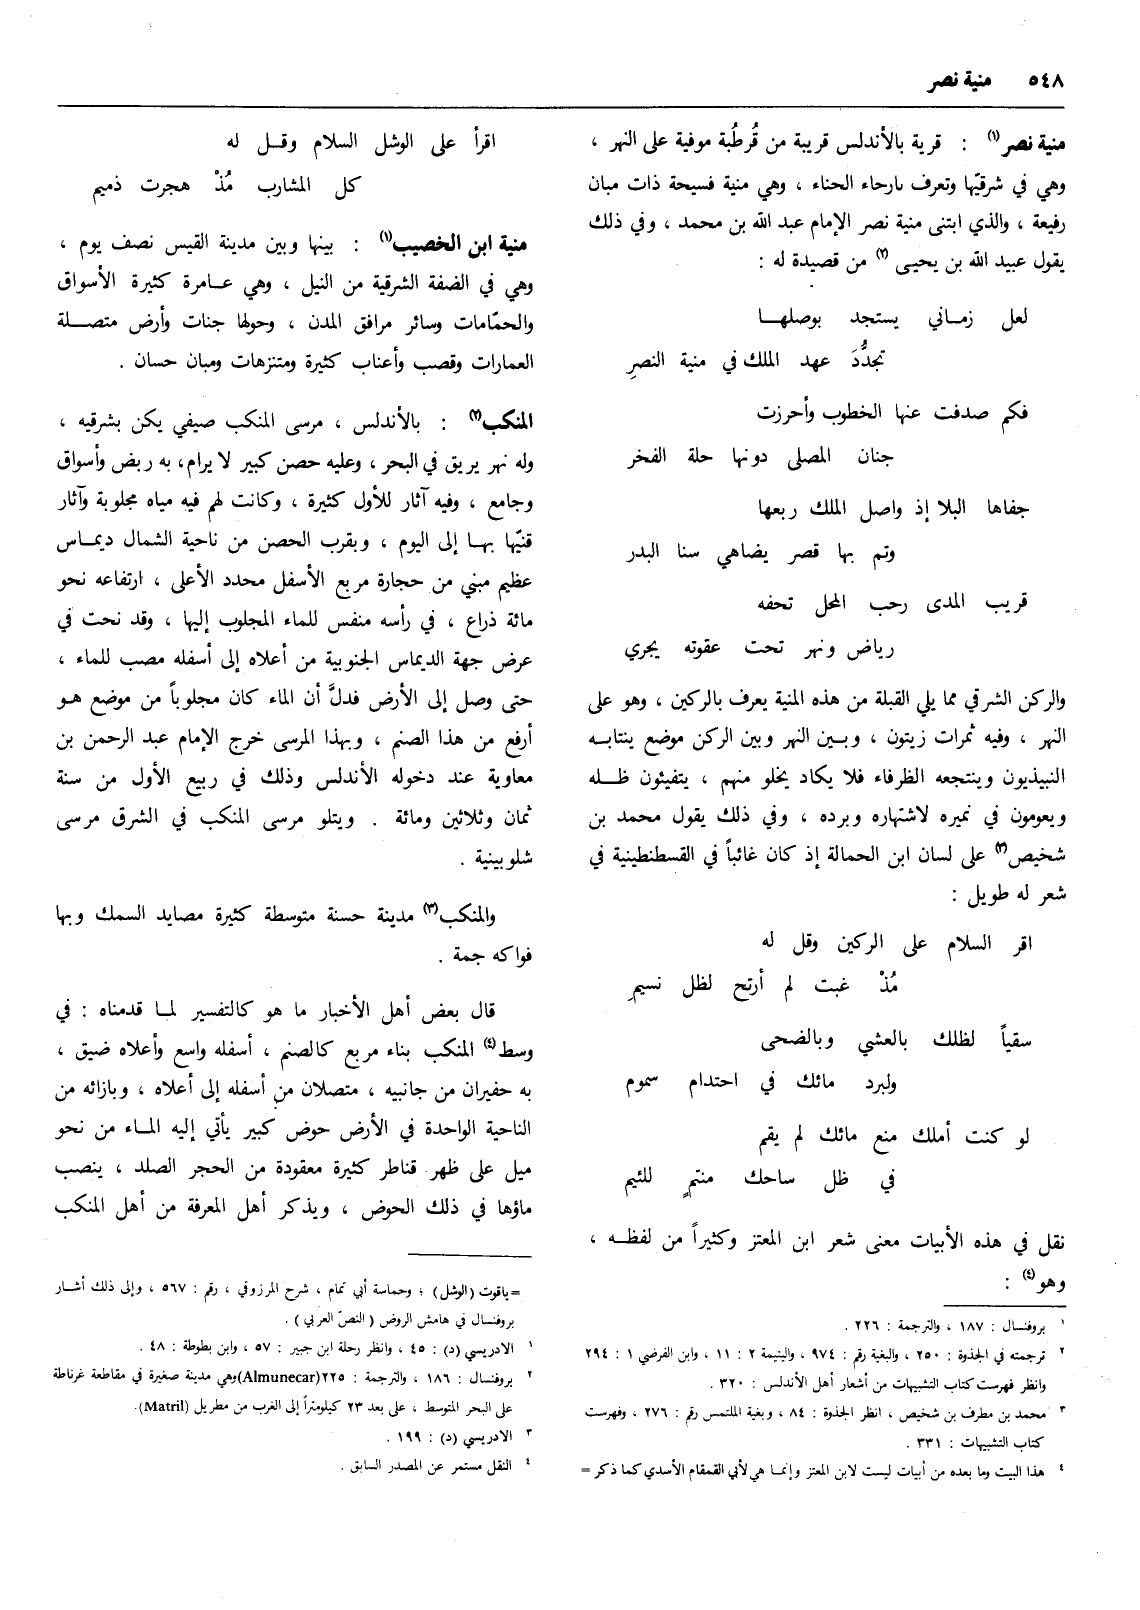 ٥٤٨ منية نصر
منية نصر(١) : قرية بالأندلس قريبة من قُرطُبة موفية على النهر ،
وهي في شرقيّها وتعرف بارحاء الحناء ، وهي منية فسيحة ذات مبان
رفيعة ، والذي ابتنى منية نصر الإمام عبد الله بن محمد ، وفي ذلك
يقول عبيد الله بن يحيى (٢) من قصيدة له :
لعل زماني يستجد بوصلها
تجدُّدَ عهد الملك في منية النصرِ
فكم صدفت عنها الخطوب وأحرزت
جنان المصلى دونها حلة الفخر
جفاها البلا إذ واصل الملك ربعها
وتم بها قصر يضاهي سنا البدر
قريب المدى رحب المحل تحفه
رياض ونهر تحت عقوته يجري
والركن الشرقي مما يلي القبلة من هذه المنية يعرف بالركين ، وهو على
النهر ، وفيه ثمرات زيتون ، وبين النهر وبين الركن موضع ينتابه
النبيذيون وينتجعه الظرفاء فلا يكاد يخلو منهم ، يتفيئون ظله
ويعومون في نميره لاشتهاره وبرده ، وفي ذلك يقول محمد بن
شخيص(٣) على لسان ابن الحمالة إذ كان غائباً في القسطنطينية في
شعر له طويل :
اقر السلام على الركين وقل له
مُذْ غبت لم أرتح لظل نسيمِ
سقياً لظلك بالعشي وبالضحى
ولبرد مائك في احتدام سموم
لو كنت أملك منع مائك لم يقم
في ظل ساحك منتمٍ للئيم
نقل في هذه الأبيات معنى شعر ابن المعتز وكثيراً من لفظه ،
وهو(٤) :
١ بروفنسال : ١٨٧ ، والترجمة : ٢٢٦ .
٢ ترجمته في الجذوة : ٢٥٠ ، والبغية رقم : ٩٧٤ ، واليتيمة ٢ : ١١ ، وابن الفرضي ١ : ٢٩٤
وانظر فهرست كتاب التشبيهات من أشعار أهل الأندلس : ٣٢٠ .
٣ محمد بن مطرف بن شخيص ، انظر الجذوة : ٨٤ ، وبغية الملتمس رقم : ٢٧٦ ، وفهرست
كتاب التشبيهات : ٣٣١ .
٤ هذا البيت وما بعده من أبيات ليست لابن المعتز وإنما هي لأبي القمقام الأسدي كما ذكر =
اقرأ على الوشل السلام وقل له
كل المشارب مُذْ هجرت ذميم
منية ابن الخصيب(١) : بينها وبين مدينة القيس نصف يوم ،
وهي في الضفة الشرقية من النيل ، وهي عامرة كثيرة الأسواق
والحمّامات وسائر مرافق المدن ، وحولها جنات وأرض متصلة
العمارات وقصب وأعناب كثيرة ومتنزهات ومبان حسان .
المنكب(٢) : بالأندلس ، مرسى المنكب صيفي يكن بشرقيه ،
وله نهر يريق في البحر ، وعليه حصن كبير لا يرام، به ربض وأسواق
وجامع ، وفيه آثار للأول كثيرة ، وكانت لهم فيه مياه مجلوبة وآثار
قنيّها بها إلى اليوم ، وبقرب الحصن من ناحية الشمال ديماس
عظيم مبني من حجارة مربع الأسفل محدد الأعلى ، ارتفاعه نحو
مائة ذراع ، في رأسه منفس للماء المجلوب إليها ، وقد نحت في
عرض جهة الديماس الجنوبية من أعلاه إلى أسفله مصب للماء ،
حتى وصل إلى الأرض فدلَّ أن الماء كان مجلوباً من موضع هو
أرفع من هذا الصنم ، وبهذا المرسى خرج الإمام عبد الرحمن بن
معاوية عند دخوله الأندلس وذلك في ربيع الأول من سنة
ثمان وثلاثين ومائة . ويتلو مرسى المنكب في الشرق مرسى
شلوبينية .
والمنكب(٣) مدينة حسنة متوسطة كثيرة مصايد السمك وبها
فواكه جمة .
قال بعض أهل الأخبار ما هو كالتفسير لما قدمناه : في
وسط(٤) المنكب بناء مربع كالصنم ، أسفله واسع وأعلاه ضيق ،
به حفيران من جانبيه ، متصلان من أسفله إلى أعلاه ، وبازائه من
الناحية الواحدة في الأرض حوض كبير يأتي إليه الماء من نحو
ميل على ظهر قناطر كثيرة معقودة من الحجر الصلد ، ينصب
ماؤها في ذلك الحوض ، ويذكر أهل المعرفة من أهل المنكب
=ياقوت (الوشل) ؛ وحماسة أبي تمام ، شرح المرزوقي ، رقم : ٥٦٧ ، وإلى ذلك أشار
بروفنسال في هامش الروض ( النصّ العربي ) .
١ الادريسي (د) : ٤٥ ، وانظر رحلة ابن جبير : ٥٧ ، وابن بطوطة : ٤٨ .
٢ بروفنسال : ١٨٦ ، والترجمة : ٢٢٥ (Almunecar) وهي مدينة صغيرة في مقاطعة غرناطة
على البحر المتوسط ، على بعد ٢٣ كيلومتراً إلى الغرب من مطريل (Matril).
٣ الادريسي (د) : ١٩٩ .
٤ النقل مستمر عن المصدر السابق .